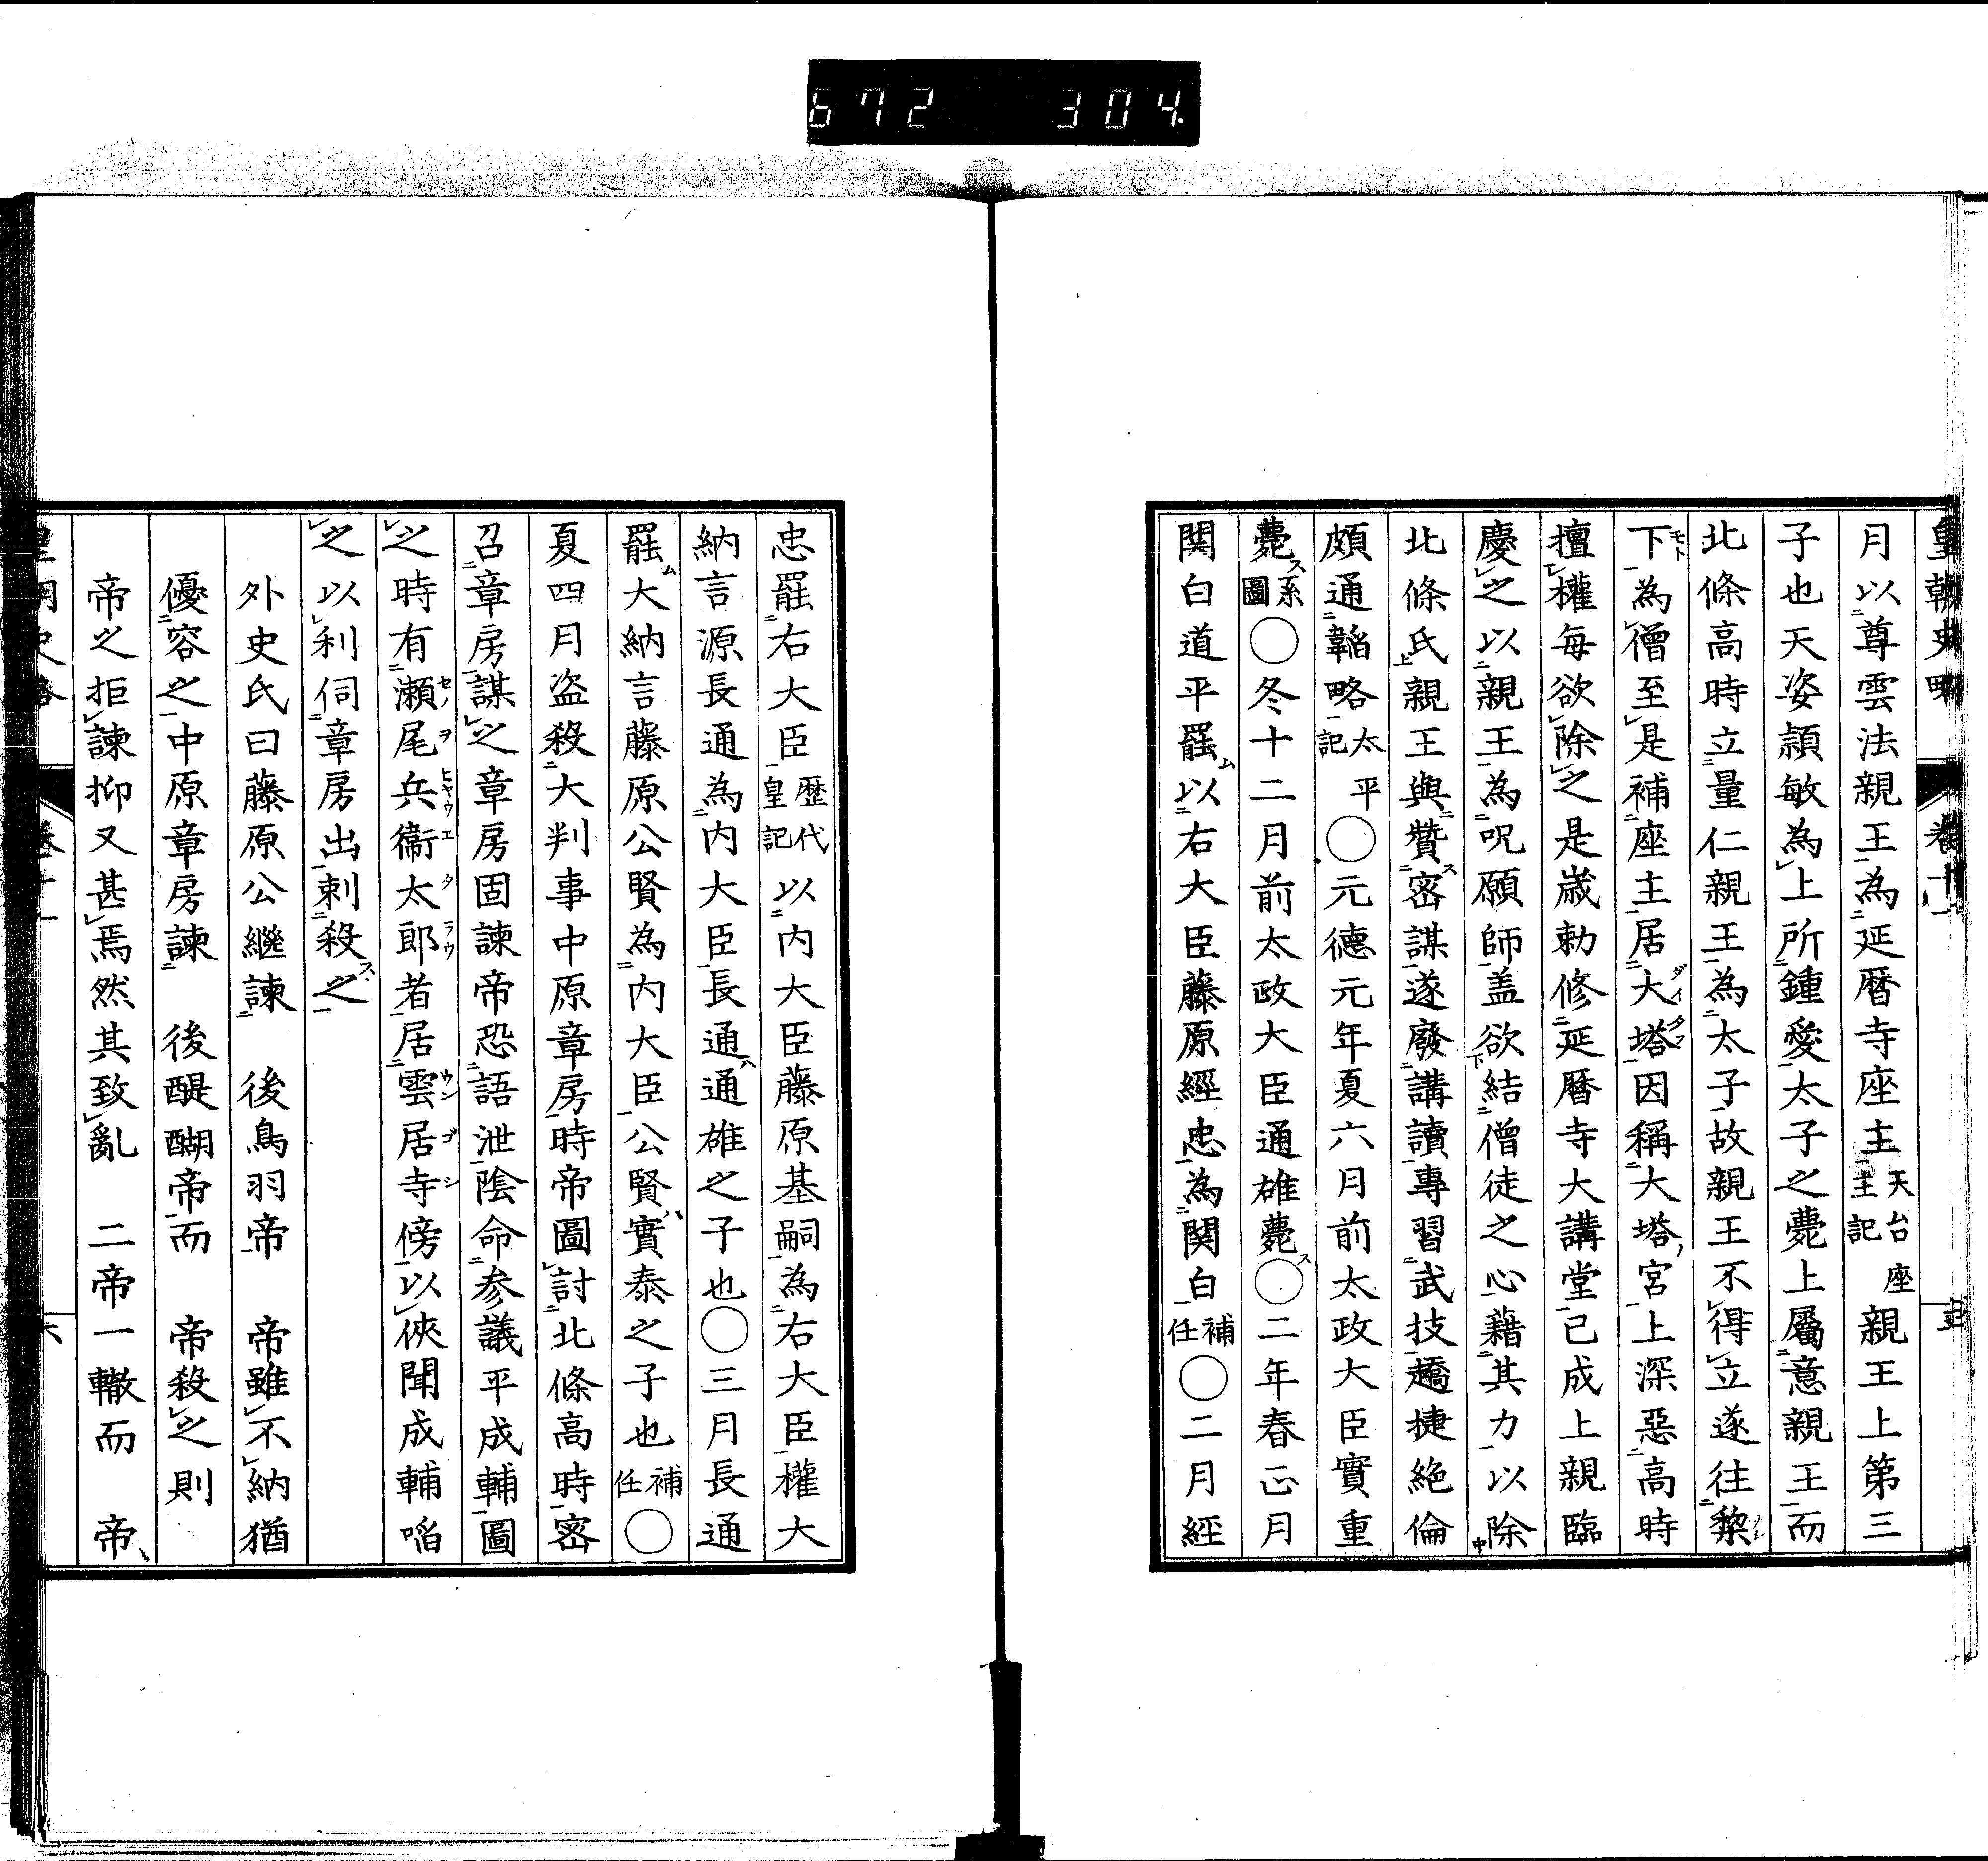 672 304.
皇朝史略 卷十一
月以尊雲法親王為延暦寺座主天台座主記親王上第三
子也天姿頴敏為上所鍾愛太子之薨上屬意親王而
北條高時立量仁親王為太子故親王不得立遂往黎
下為僧至是補座主居大塔因稱大塔宮上深惡高時
擅權每欲除之是歳勅修延暦寺大講堂已成上親臨
慶之以親王為呪願師盖欲結僧徒之心藉其力以除
北條氏親王與贊密謀遂廢講讀專習武技趫捷絶倫
頗通韜略太平記〇元德元年夏六月前太政大臣實重
薨系圖〇冬十二月前太政大臣通雄薨〇二年春正月
関白道平罷以右大臣藤原經忠為関白補任〇二月經
忠罷右大臣歷代皇記以内大臣藤原基嗣為右大臣權大
納言源長通為内大臣長通通雄之子也〇三月長通
罷大納言藤原公賢為内大臣公賢實泰之子也補任〇
夏四月盗殺大判事中原章房時帝圖討北條高時密
召章房謀之章房固諫帝恐語泄陰命参議平成輔圖
之時有瀬尾兵衞太郎者居雲居寺傍以俠聞成輔啗
之以利伺章房出刺殺之
外史氏曰藤原公繼諫後鳥羽帝帝雖不納猶
優容之中原章房諫後醍醐帝而帝殺之則
帝之拒諫抑又甚焉然其致亂二帝一轍而帝